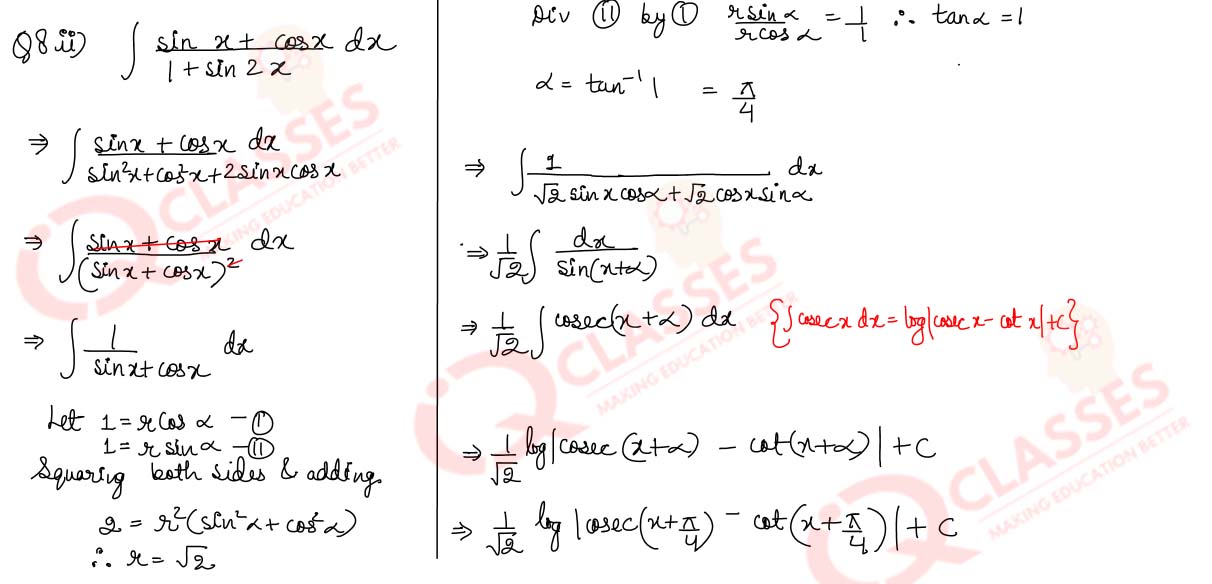 Q8 ii) ∫ (sin x + cosx)/(1 + sin 2x) dx
⇒ ∫ (sinx + cosx)/(sin²x + cos²x + 2sinxcosx) dx
⇒ ∫ (sinx + cosx)/(sinx + cosx)² dx
⇒ ∫ 1/(sinx + cosx) dx
Let 1 = r cos α – (I)
1 = r sin α – (II)
Squaring both sides & adding.
2 = r²(sin²α + cos²α)
∴ r = √2
Div (II) by (I) rsinα/rcosα = 1/1 ∴ tanα = 1
α = tan⁻¹ 1 = π/4
⇒ ∫ 1/(√2 sinx cosα + √2 cosx sinα) dx
⇒ 1/√2 ∫ dx/sin(x+α)
⇒ 1/√2 ∫ cosec(x+α) dx {∫cosecx dx = log|cosec x – cot x| + c}
⇒ 1/√2 log|cosec(x+α) – cot(x+α)| + C
⇒ 1/√2 log|cosec(x+π/4) – cot(x+π/4)| + C
CLASSES
MAKING EDUCATION BETTER
CLASSES
MAKING EDUCATION BETTER
CLASSES
MAKING EDUCATION BETTER